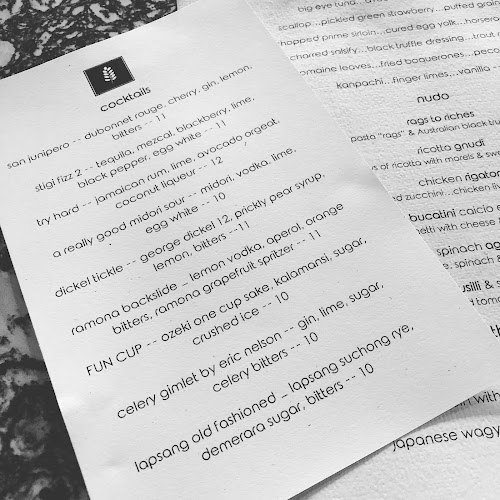 cocktails
san junipero -- dubonnet rouge, cherry, gin, lemon,
bitters -- 11
stigi fizz 2 -- tequila, mezcal, blackberry, lime,
black pepper, egg white -- 11
try hard -- jamaican rum, lime, avocado orgeat,
coconut liqueur -- 12
a really good midori sour -- midori, vodka, lime,
egg white -- 10
dickel tickle -- george dickel 12, prickly pear syrup,
lemon, bitters --11
ramona backslide _ lemon vodka, aperol, orange
bitters, ramona grapefruit spritzer -- 11
FUN CUP -- ozeki one cup sake, kalamansi, sugar,
crushed ice -- 10
celery gimlet by eric nelson -- gin, lime, sugar,
celery bitters -- 10
lapsang old fashioned _ lapsang suchong rye,
demerara sugar, bitters -- 10
big eye tuna
scallop...pickled green strawberry...puffed grain
chopped prime sirloin...cured egg yolk...horsera
charred salsify...black truffle dressing...trout
romaine leaves...fried boquerones...peco
kanpachi...finger limes...vanilla
nudo
rags to riches
pasta "rags" & Australian black tru
ricotta gnudi
of ricotta with morels & sw
chicken rigaton
d zucchini...chicken li
bucatini calcio e
melti with cheese &
spinach ag
e, spinach &
usilli & s
d tom
with
japanese wagy